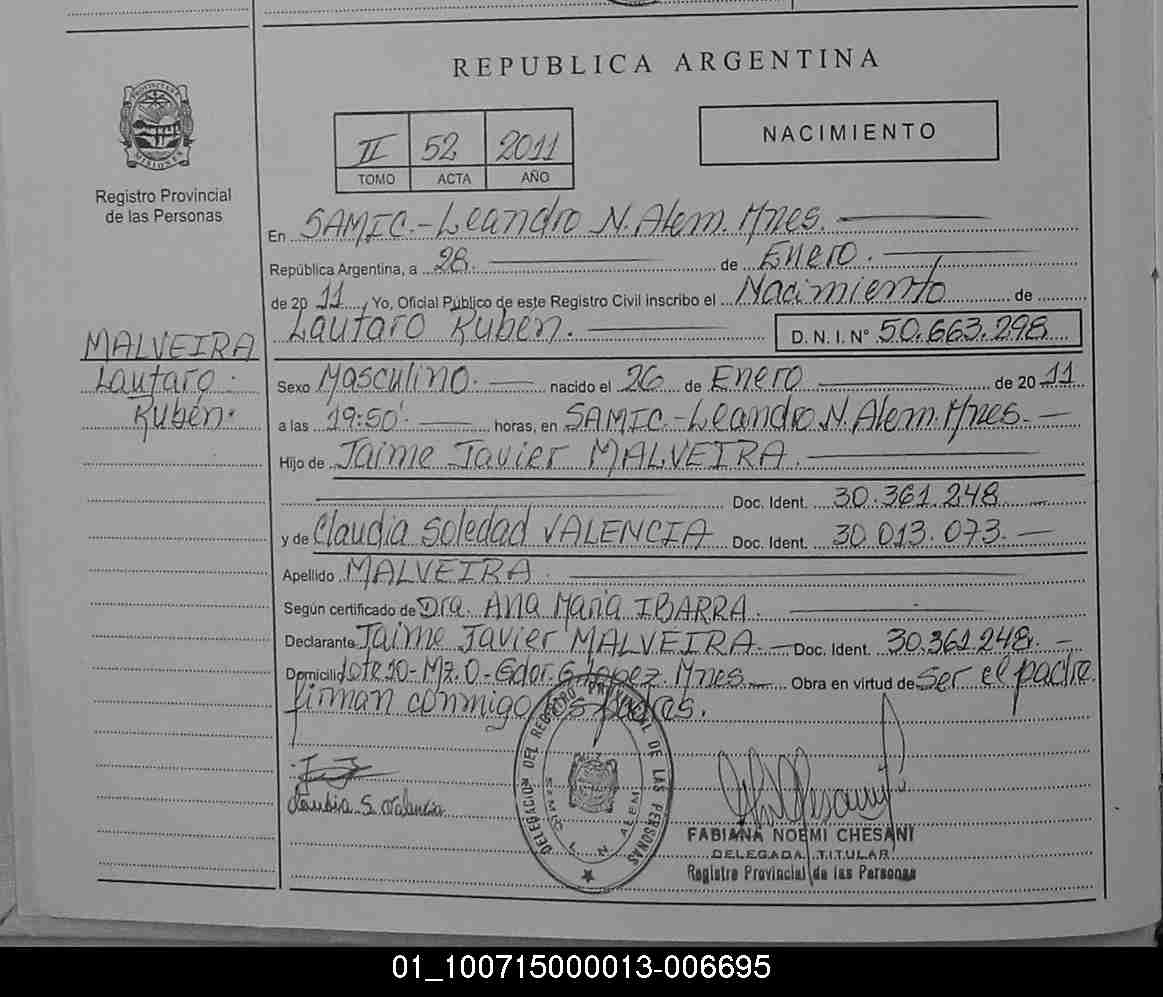 REPUBLICA ARGENTINA
PROVINCIA DE MISIONES
Registro Provincial
de las Personas
II 52 2011
TOMO ACTA AÑO
NACIMIENTO
En SAMIC.-Leandro N. Alem. Mnes.
República Argentina, a 28. de Enero.
de 20 11, Yo, Oficial Público de este Registro Civil inscribo el Nacimiento de
Lautaro Rubén. D. N. I. N° 50.663.298
MALVEIRA
Lautaro
Rubén.
Sexo Masculino. nacido el 26 de Enero de 20 11
a las 19:50' horas, en SAMIC.-Leandro N. Alem. Mnes.
Hijo de Jaime Javier MALVEIRA.
Doc. Ident. 30.361.248
y de Claudia Soledad VALENCIA Doc. Ident. 30.013.073.
Apellido MALVEIRA.
Según certificado de Dra. Ana María IBARRA.
Declarante Jaime Javier MALVEIRA. Doc. Ident. 30.361.248.
Domicilio Lote 10-Mz.0-Gdor. G. Lopez. Mnes. Obra en virtud de ser el padre.
firman conmigo los padres.
Claudia S. Valencia
DELEGACION DEL REGISTRO PROVINCIAL DE LAS PERSONAS
SAMIC L. N. ALEM
FABIANA NOEMI CHESANI
DELEGADA TITULAR
Registro Provincial de las Personas
01_100715000013-006695